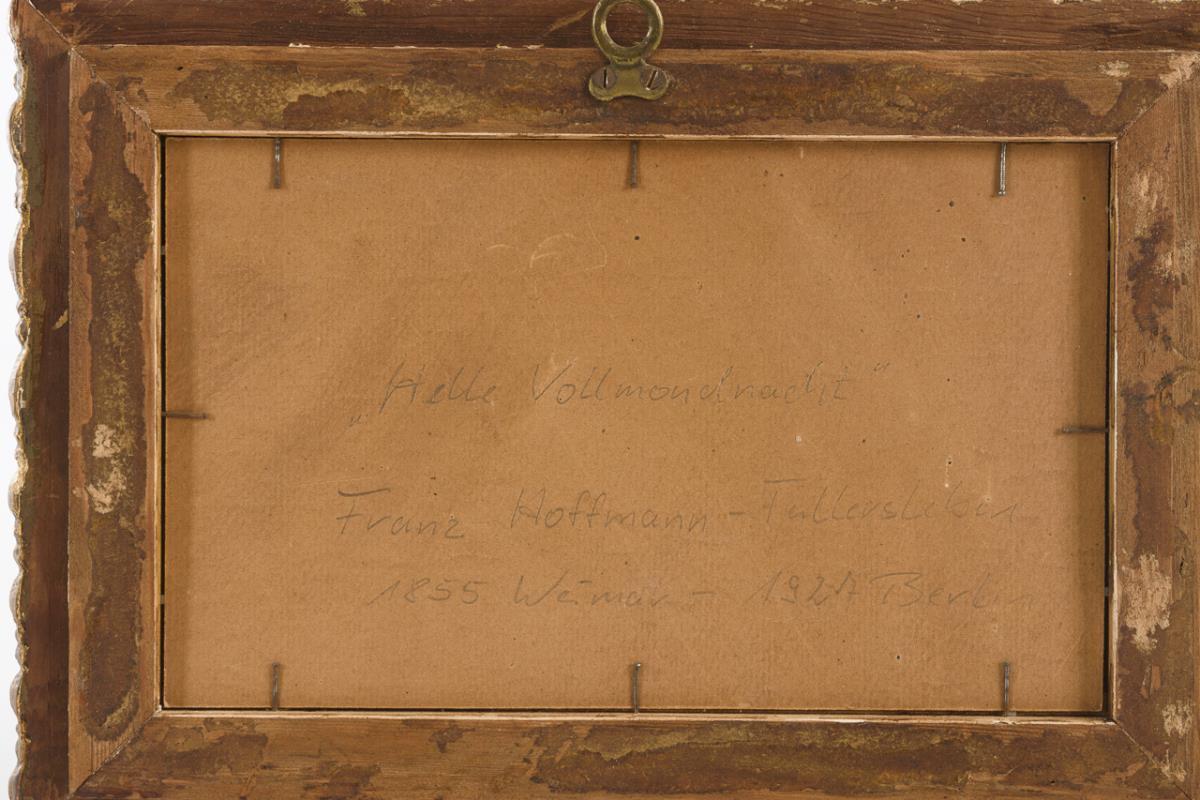 „Helle Vollmondnacht"
Franz Hoffmann - Fallersleben
1855 Weimar - 1927 Berlin